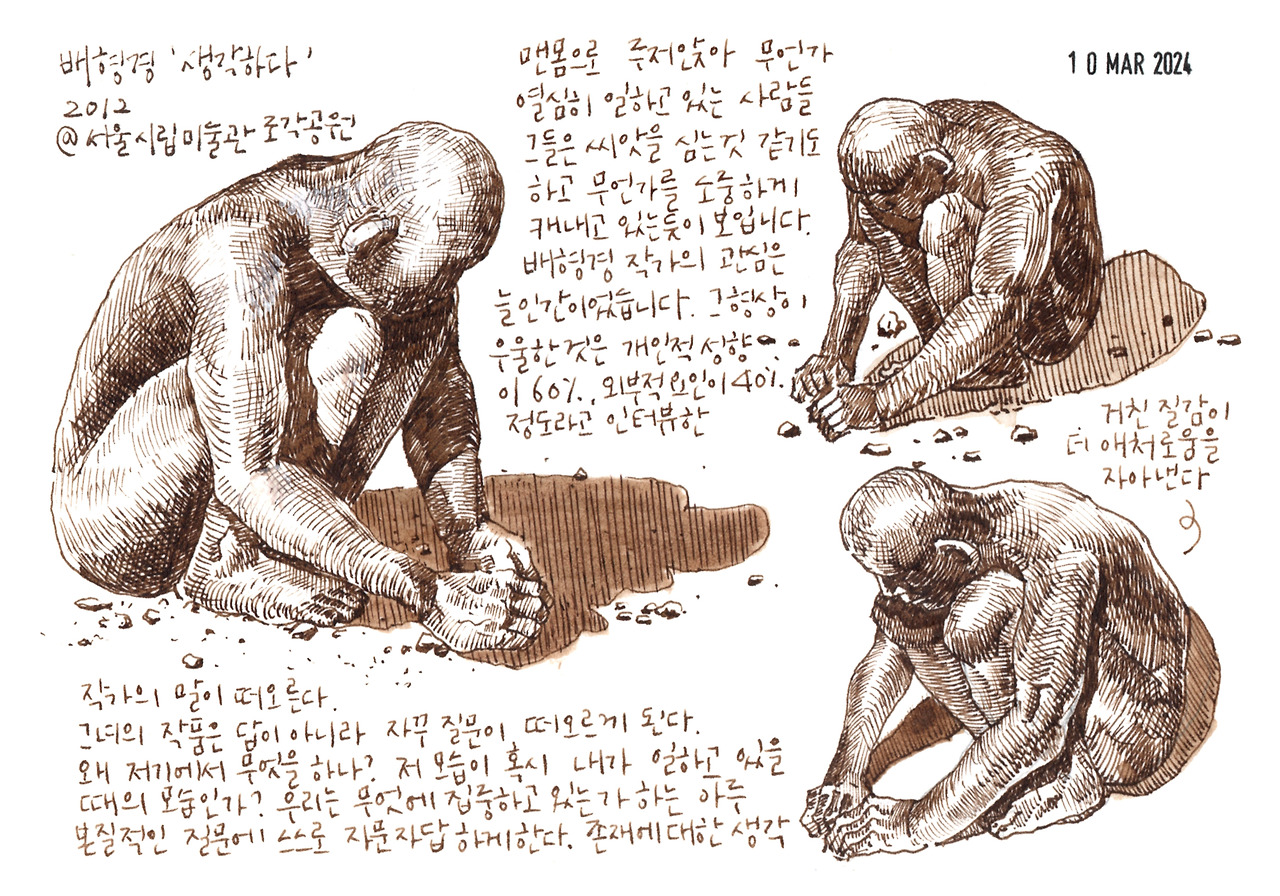 배형경 '생각하다'
2012
@서울시립미술관 조각공원
맨몸으로 주저앉아 무언가
열심히 일하고 있는 사람들
그들은 씨앗을 심는것 같기도
하고 무언가를 소중하게
캐내고 있는듯이 보입니다.
배형경 작가의 관심은
늘인간이었습니다. 그형상이
우울한것은 개인적 성향
이 60%, 외부적요인이 40%.
정도라고 인터뷰한
작가의 말이 떠오른다.
그녀의 작품은 답이 아니라 자꾸 질문이 떠오르게 된다.
왜 저기에서 무엇을 하나? 저 모습이 혹시 내가 일하고 있을
때의 모습인가? 우리는 무엇에 집중하고 있는가 하는 아주
본질적인 질문에 스스로 자문자답하게한다. 존재에대한 생각
10 MAR 2024
거친 질감이
더 애처로움을
자아낸다